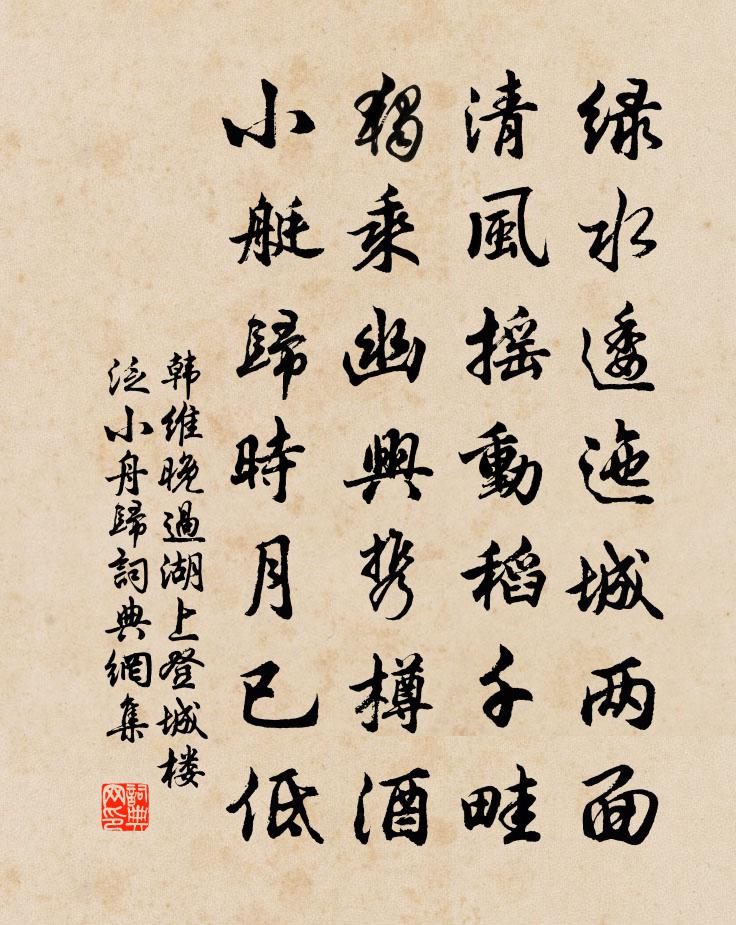 緑水逶迤城两面
清風搖動稻千畦
獨乘幽興携樽酒
小艇歸時月已低
韩維晚過湖上登城楼
泛小舟歸詞典網集
詞典
网印